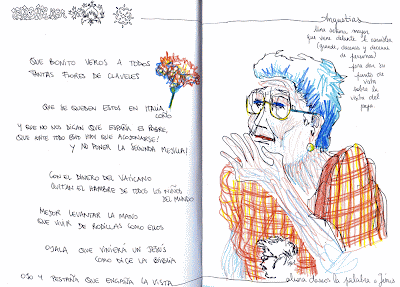 QUE BONITO VEROS A TODOS
TANTAS FLORES DE CLAVELES
QUE SE QUEDEN ESTOS EN ITALIA,
COÑO
Y QUE NO NOS DIGAN QUE ESPAÑA ES POBRE,
QUE ANTE TODO ESO HAY QUE ACOJONARSE!
Y NO PONER LA SEGUNDA MEJILLA!
CON EL DINERO DEL VATICANO
QUITAN EL HAMBRE DE TODOS LOS NIÑOS
DEL MUNDO
MEJOR LEVANTAR LA MANO
QUE VIVIR DE RODILLAS COMO ELLOS
OJALÁ QUE VINIERA UN JESÚS
COMO DICE LA BIBLIA
OJO Y PESTAÑA QUE ENGAÑA LA VISTA
Angustias
Una señora mayor
que viene delante el
(grande, decenas y decenas
de personas)
para dar su
punto de
vista
sobre la
visita del
papa
ahora damos la palabra a Jesús